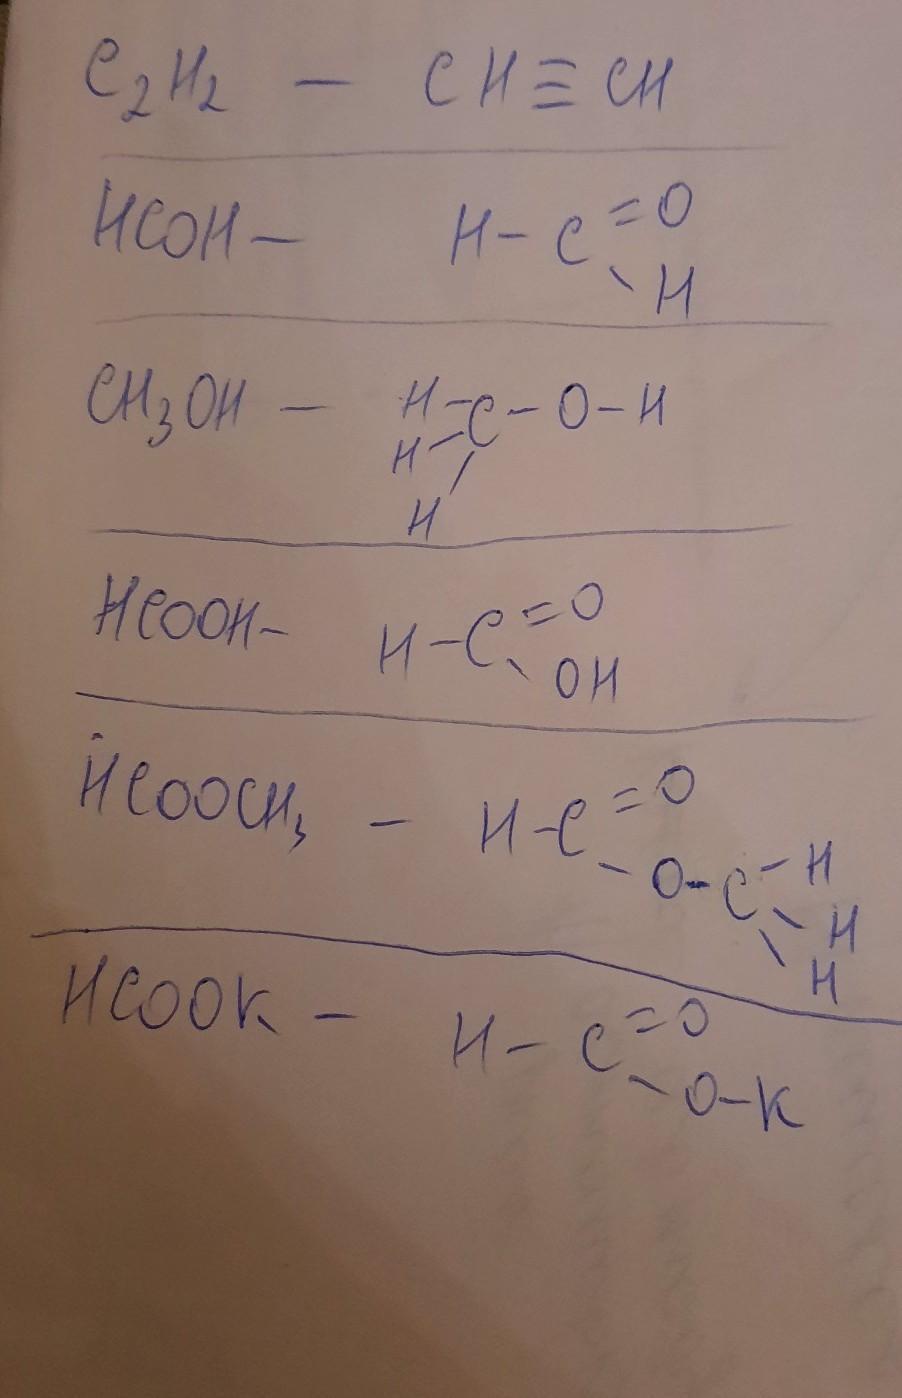 C₂H₂ — CH≡CH
HCOH — H-C=O
\H
CH₃OH — H-C-O-H
H
H
HCOOH- H-C=O
\OH
HCOOCH₃ — H-C=O
\O-C-H
\H
\H
HCOOK — H-C=O
\O-K